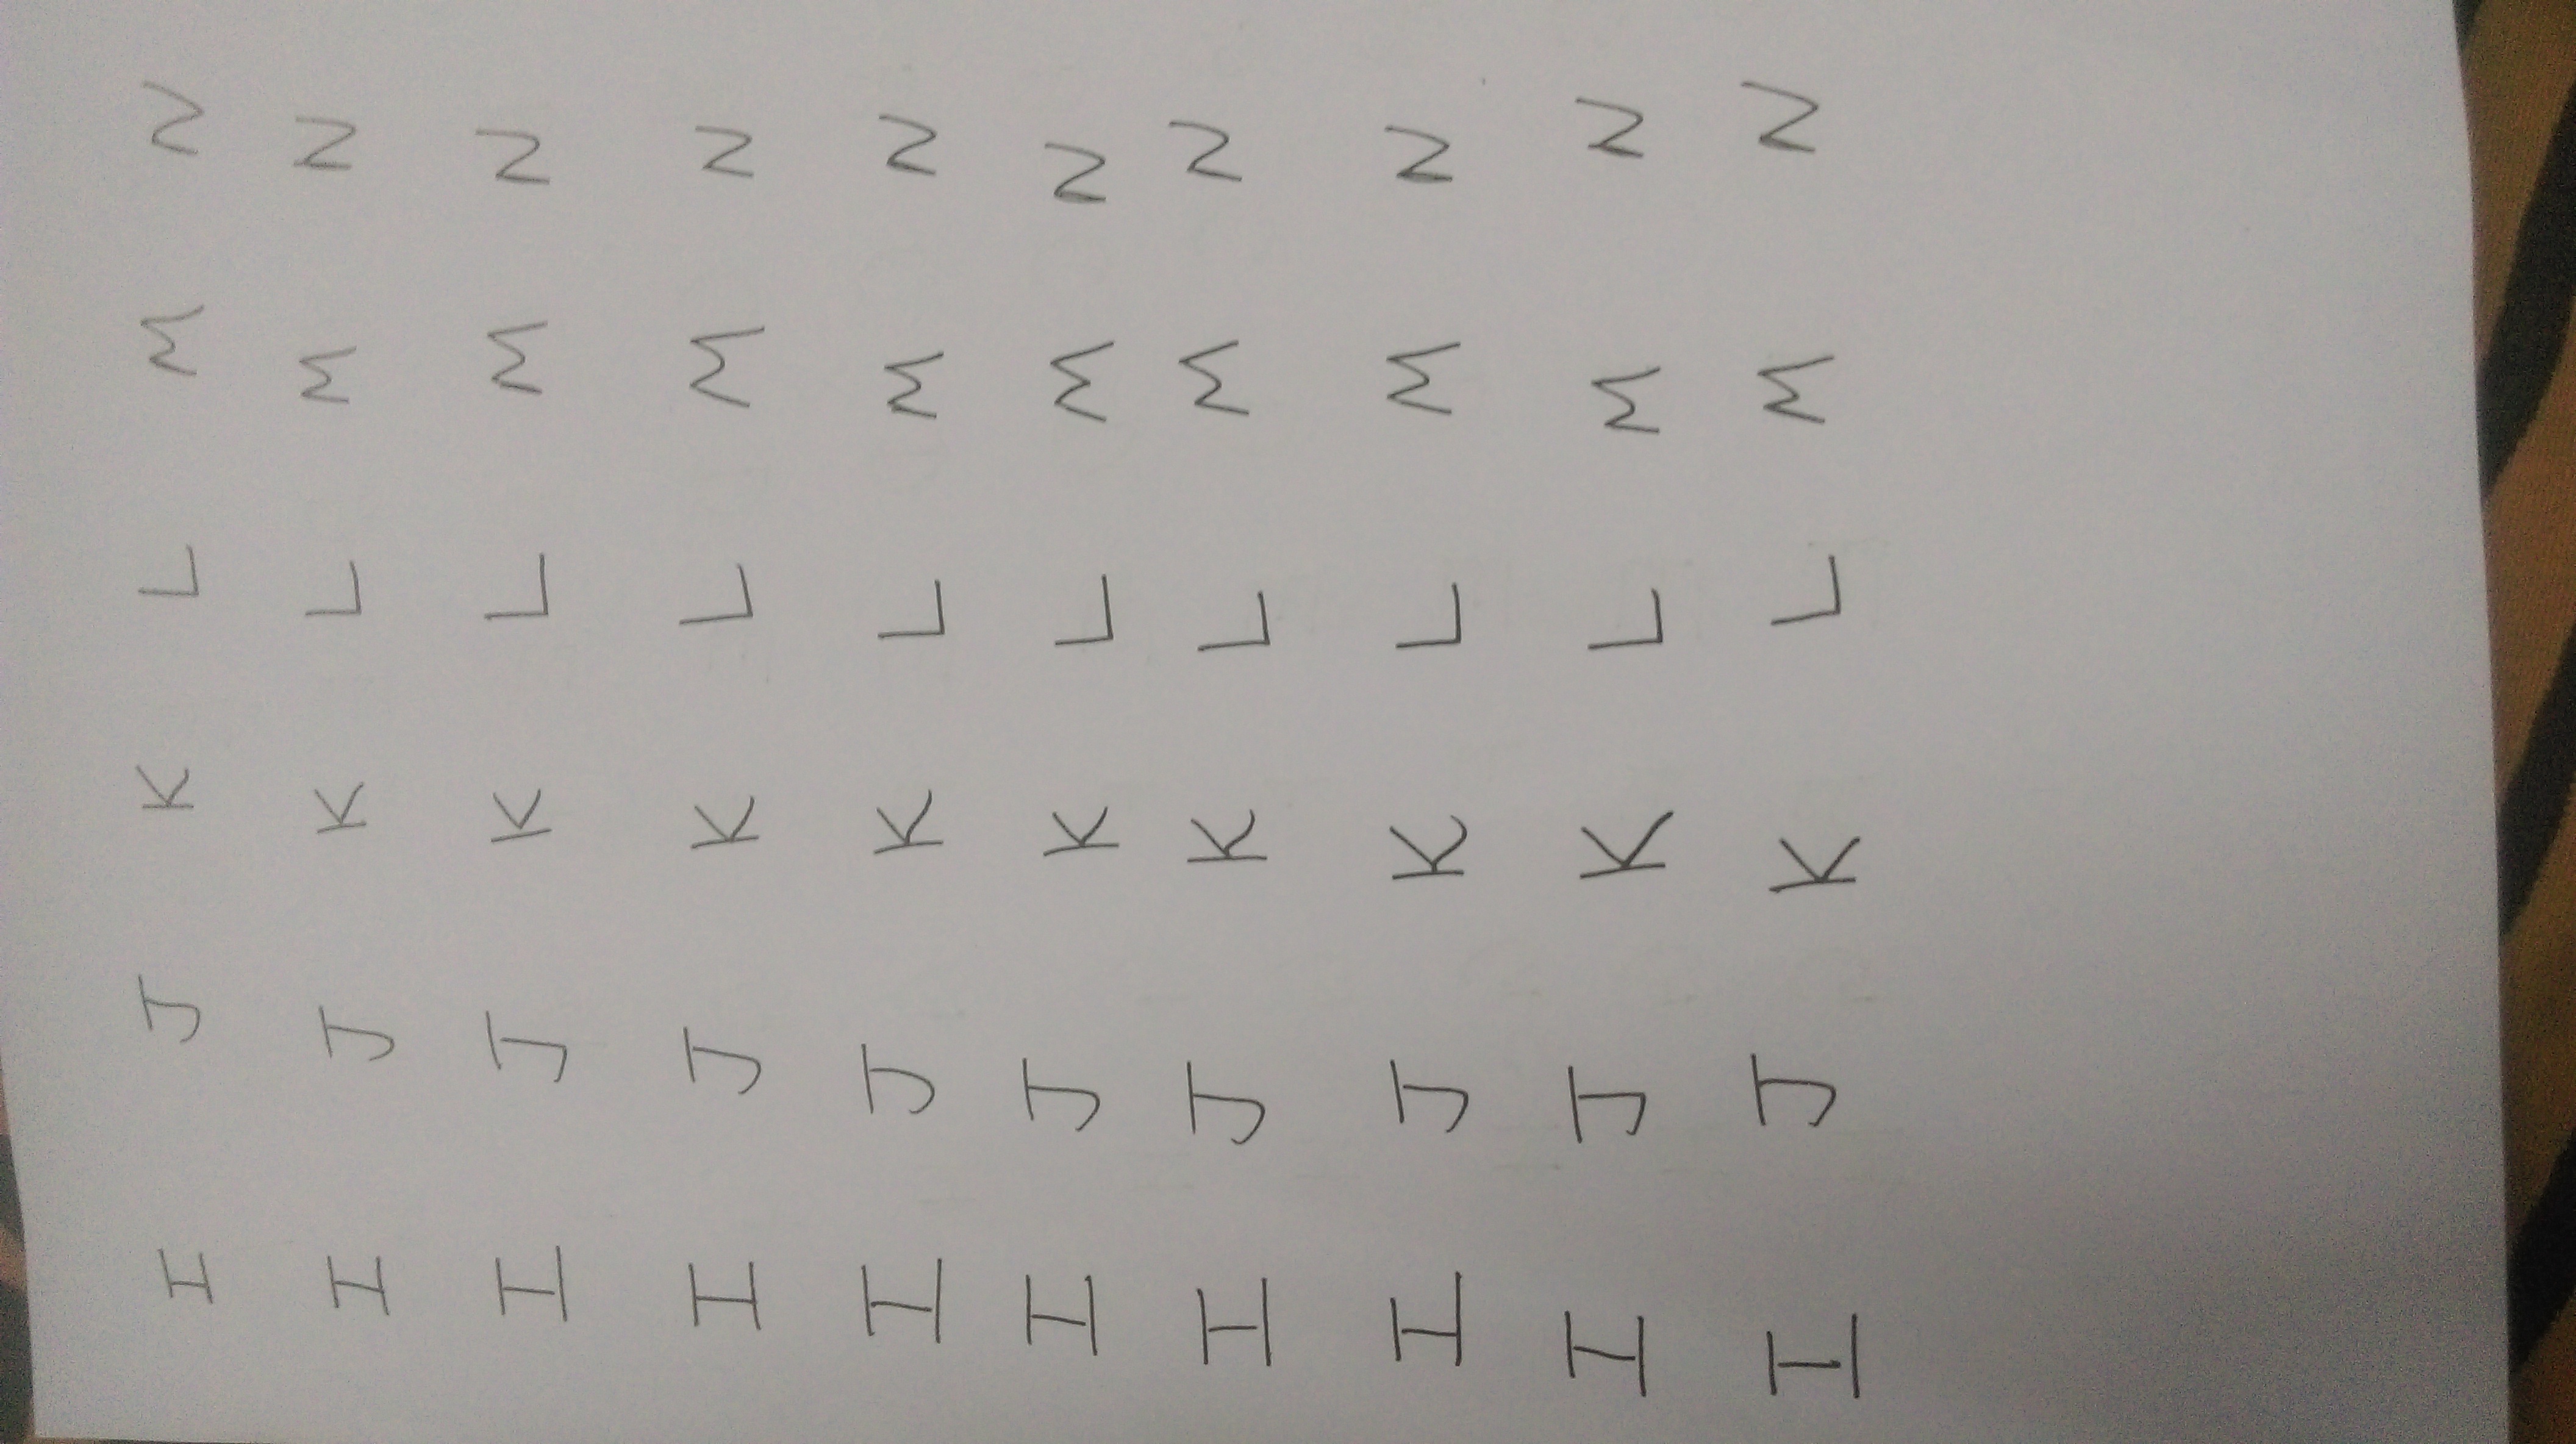 I J K L M N
I J K L M N
I J K L M N
I J K L M N
I J K L M N
I J K L M N
I J K L M N
I J K L M N
I J K L M N
I J K L M N